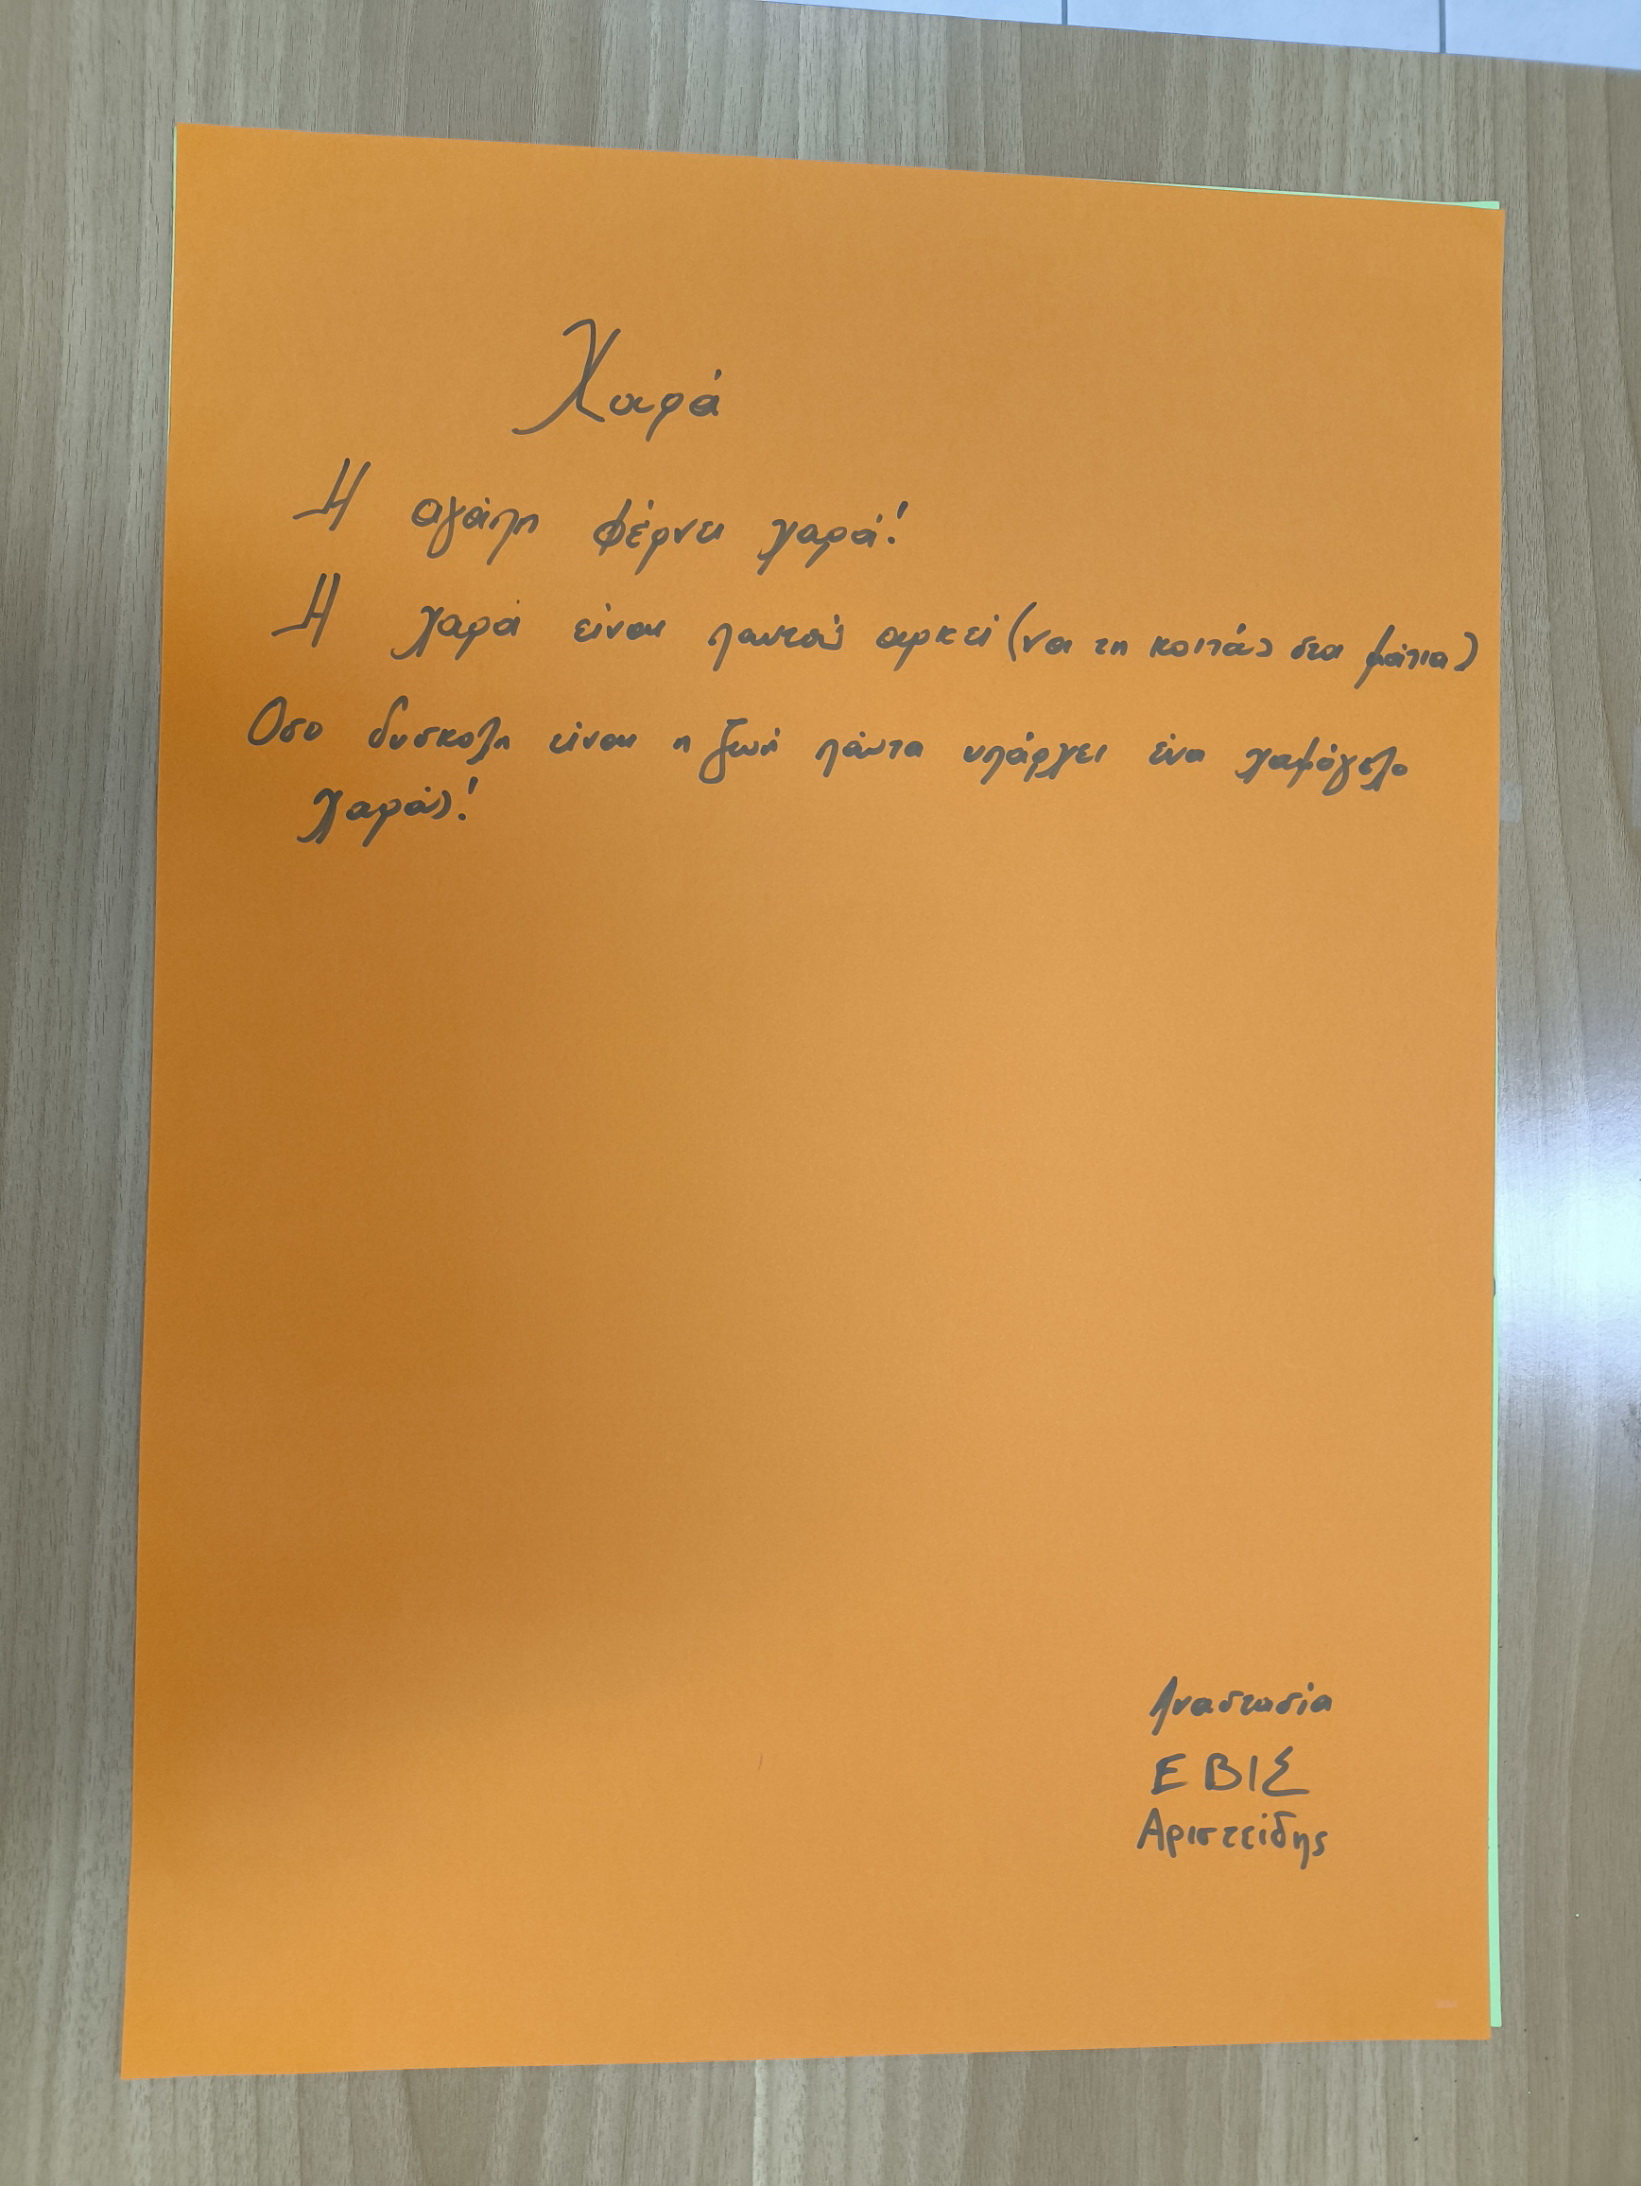 Χαρά
Η αγάπη φέρνει χαρά!
Η χαρά είναι παντού αρκεί (να τη κοιτάς στα μάτια)
Οσο δυσκολη είναι η ζωή πάντα υπάρχει ένα χαμόγελο
χαράς!
Αναστασία
ΕΒΙΣ
Αριστείδης